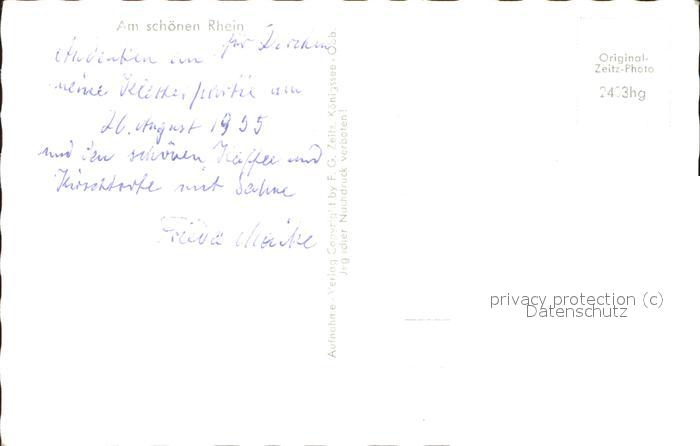 Am schönen Rhein
für
Andenken an
meine Kletterpartie am
26. August 1955
und den schönen Kaffee und
Kirschtorte mit Sahne
Frieda
Aufnahme u. Verlag Copyright by F. G. Zeitz, Königssee - Obb.
Jeglicher Nachdruck verboten!
Original-
Zeitz-Photo
hg
privacy protection (c)
Datenschutz